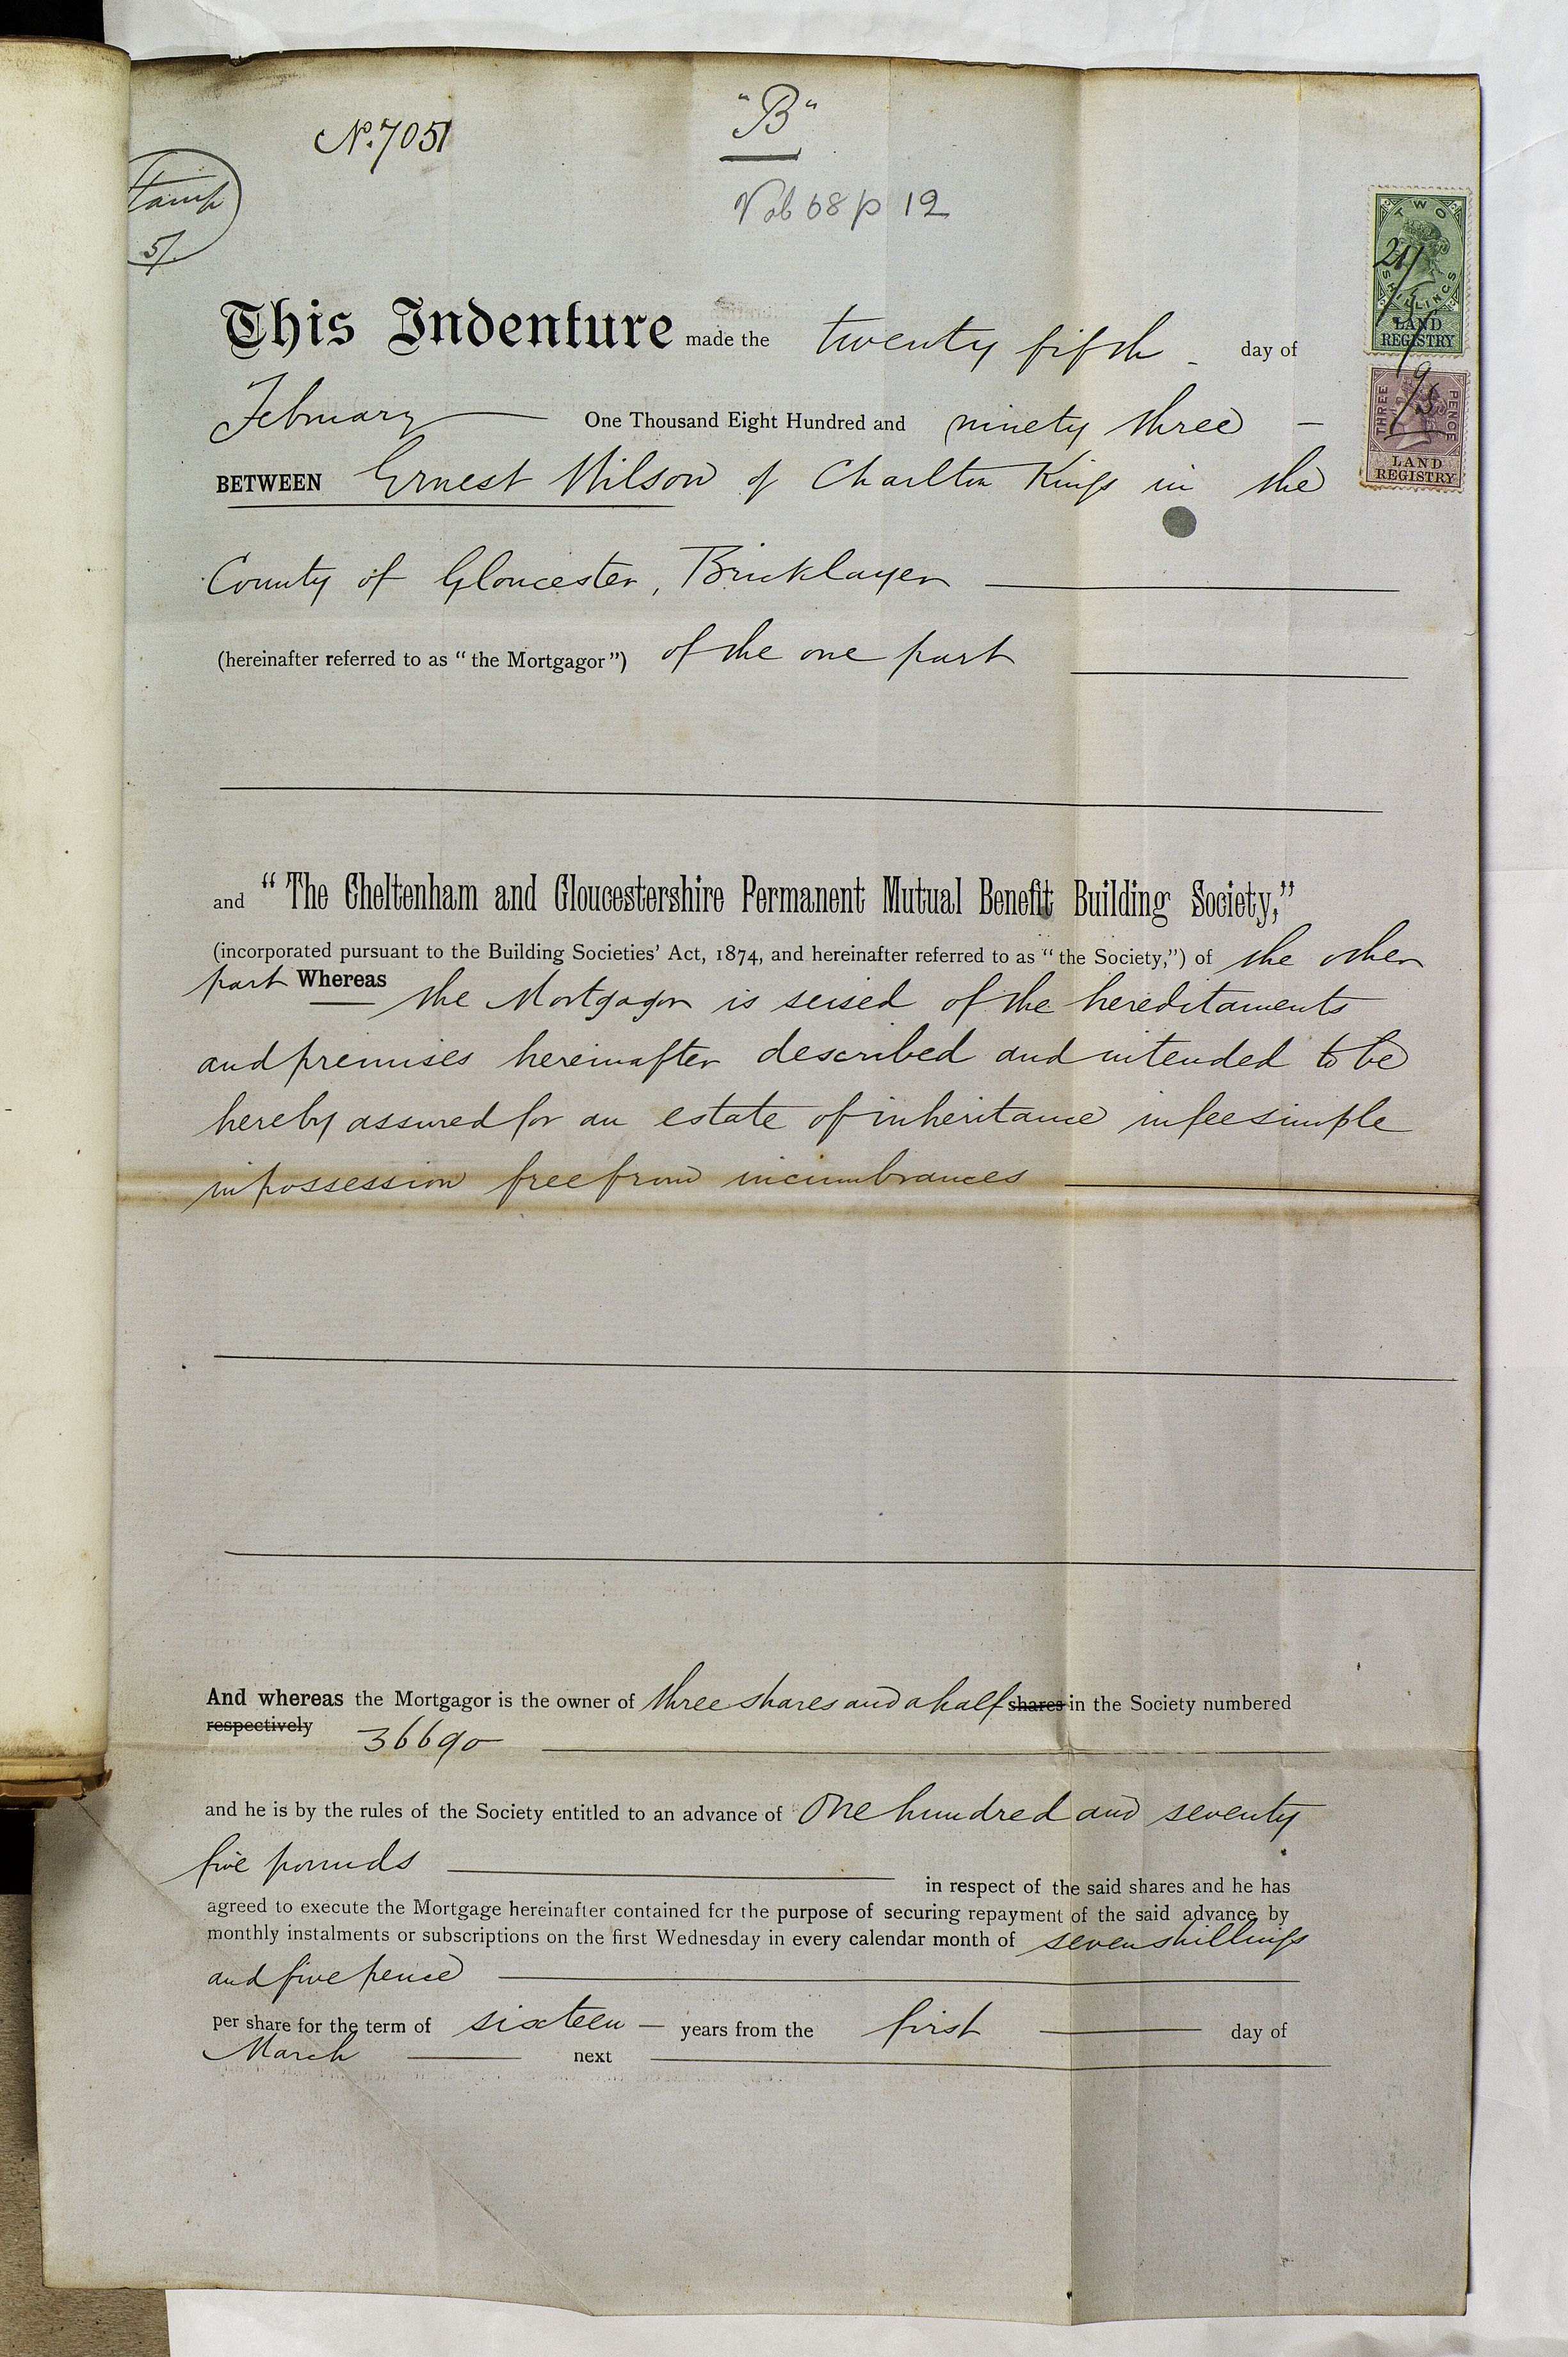 No. 7051
"B"
Vol 68 p 12
Stamp
5/.
TWO SHILLINGS
LAND
REGISTRY
THREE PENCE
LAND
REGISTRY
This Indenture made the twenty fifth day of
February One Thousand Eight Hundred and ninety three
BETWEEN Ernest Wilson of Charlton Kings in the
County of Gloucester, Bricklayer
(hereinafter referred to as "the Mortgagor") of the one part
and "The Cheltenham and Gloucestershire Permanent Mutual Benefit Building Society,"
(incorporated pursuant to the Building Societies' Act, 1874, and hereinafter referred to as "the Society,") of the other
part Whereas the Mortgagor is seised of the hereditaments
and premises hereinafter described and intended to be
hereby assured for an estate of inheritance in fee simple
in possession free from incumbrances
And whereas the Mortgagor is the owner of three shares and a half shares in the Society numbered
respectively 36690
and he is by the rules of the Society entitled to an advance of One hundred and seventy
five pounds in respect of the said shares and he has
agreed to execute the Mortgage hereinafter contained for the purpose of securing repayment of the said advance by
monthly instalments or subscriptions on the first Wednesday in every calendar month of seven shillings
and five pence
per share for the term of sixteen years from the first day of
March next